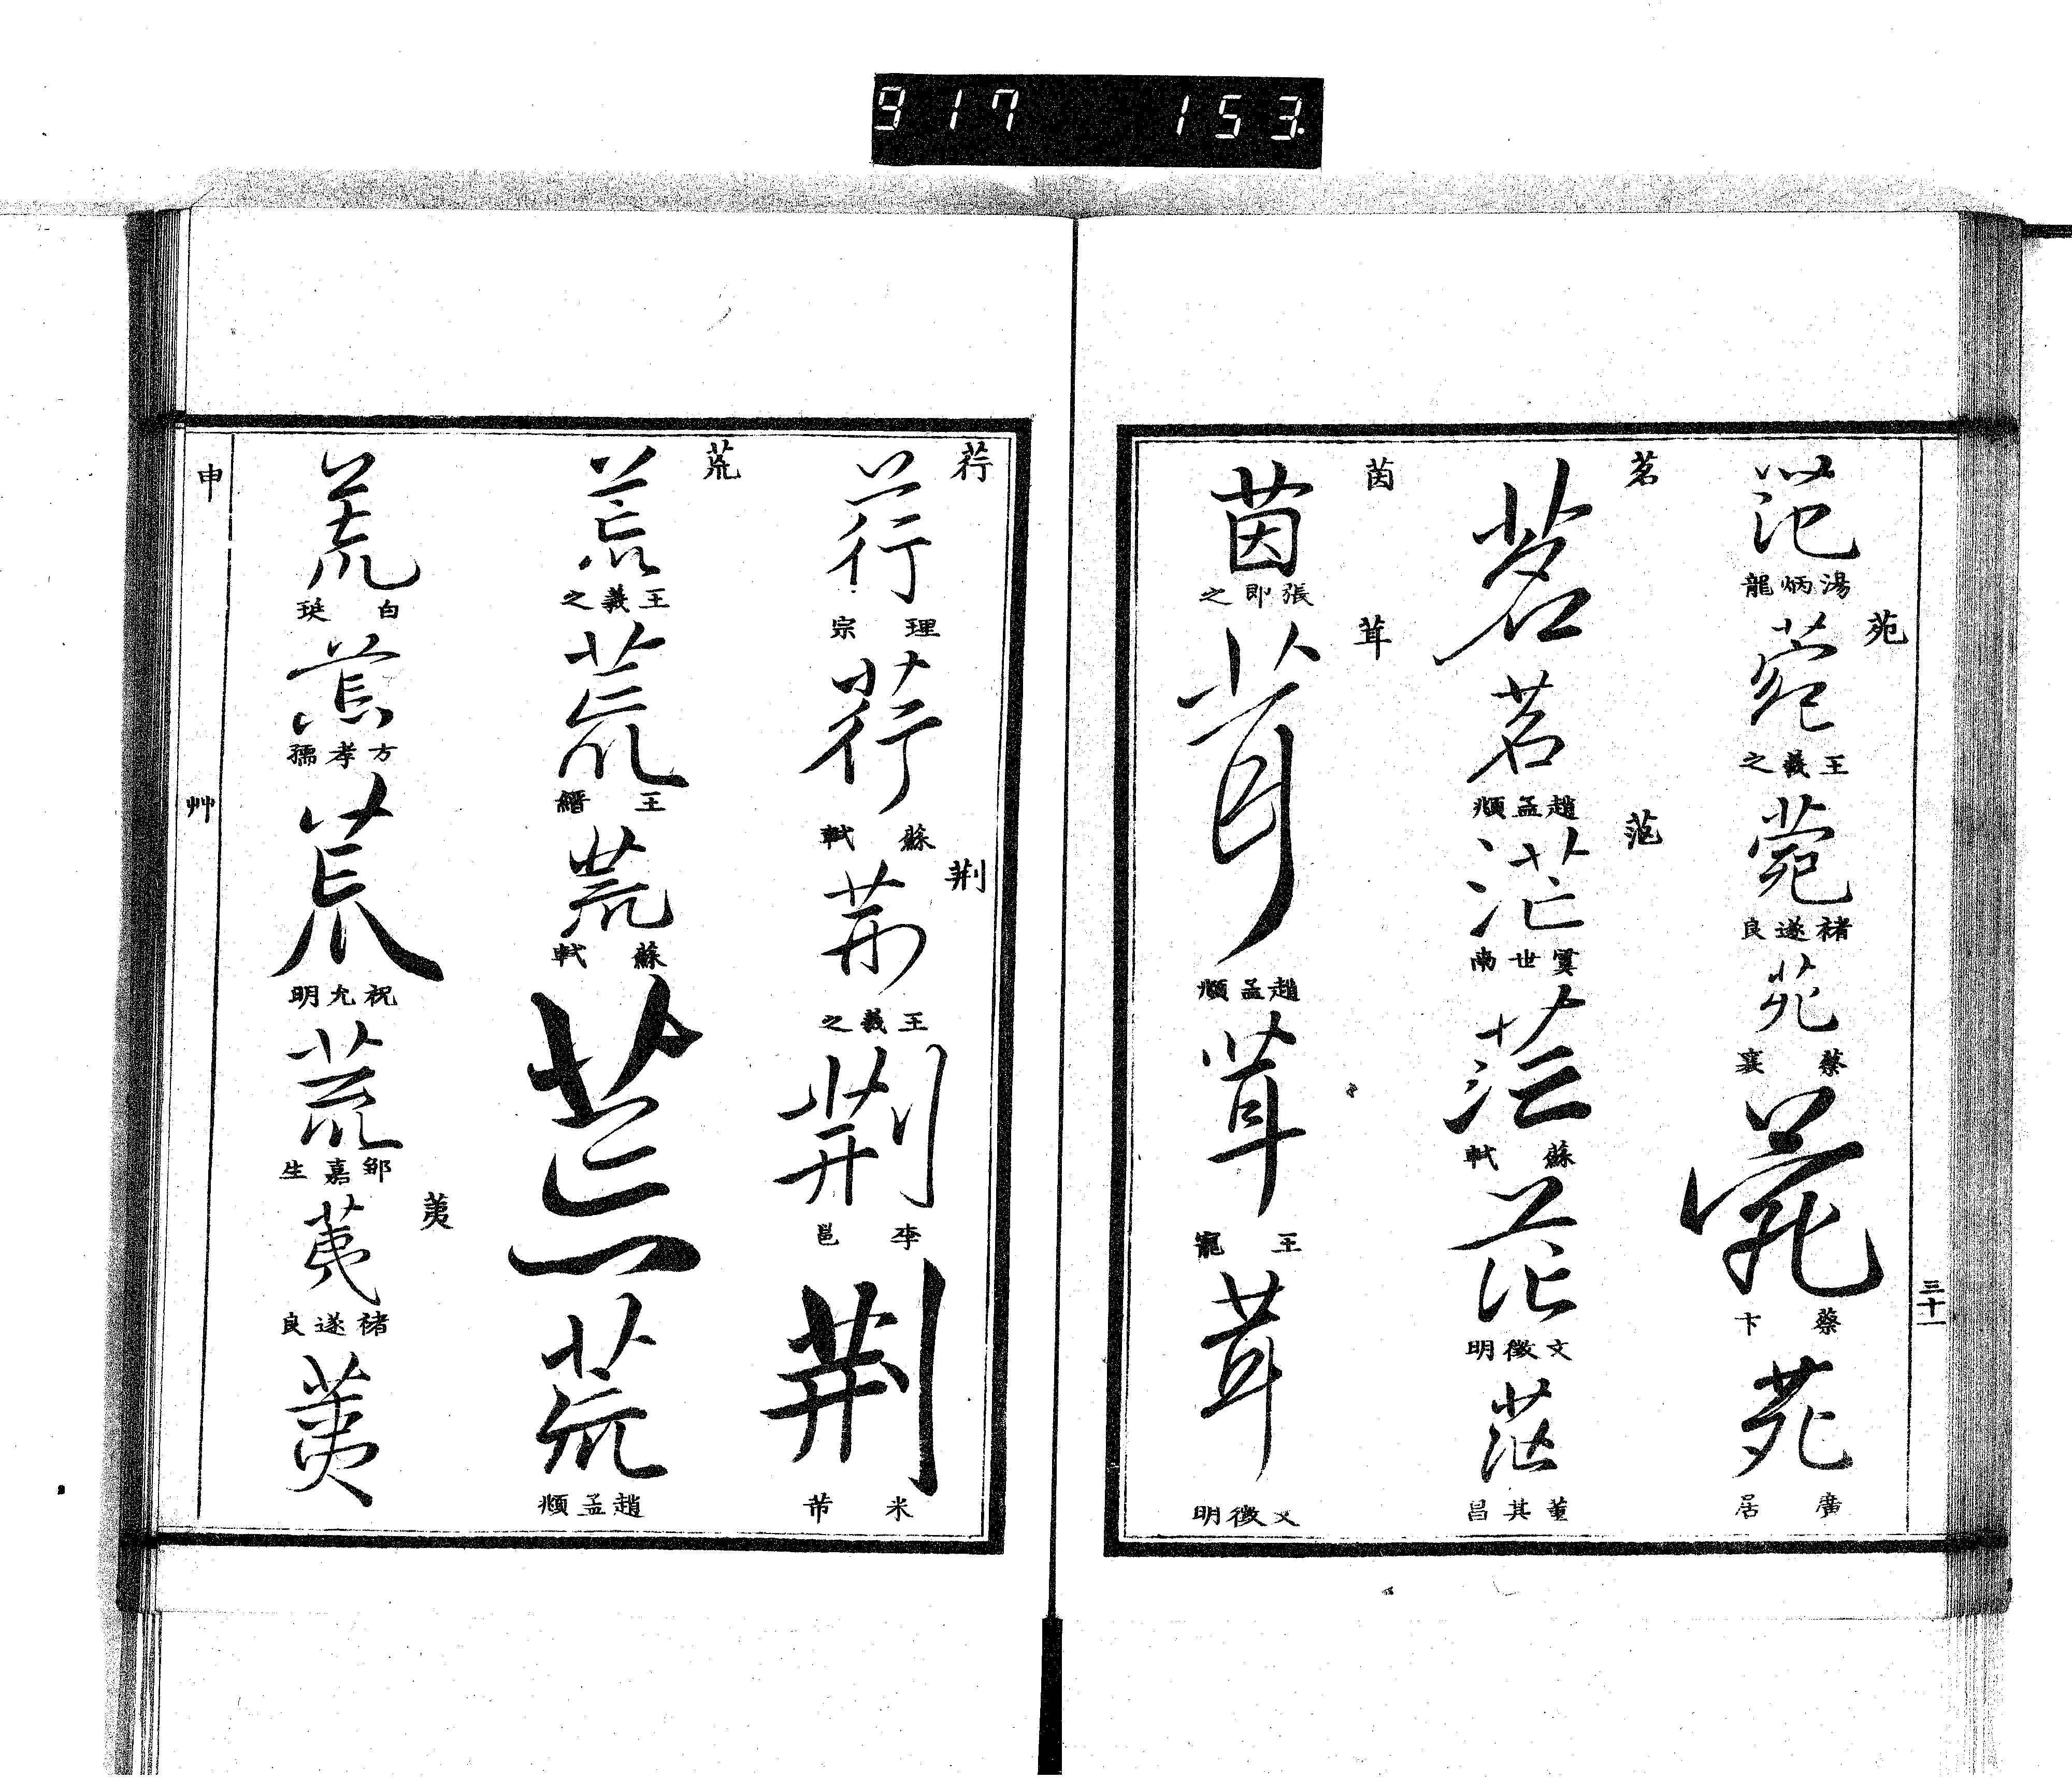 917 153
三十一
范
湯炳龍
苑
苑
王羲之
苑
褚遂良
苑
蔡襄
苑
蔡卞
苑
廣居
茗
茗
茗
趙孟頫
茫
茫
虞世南
茫
蘇軾
茫
文徵明
茫
董其昌
茵
茵
張即之
茸
茸
趙孟頫
茸
王寵
茸
文徵明
荇
荇
理宗
荇
蘇軾
荆
荆
王羲之
荆
李邕
荆
米芾
荒
荒
王羲之
荒
王縉
荒
蘇軾
荒
荒
趙孟頫
荒
白珽
荒
方孝孺
荒
祝允明
荒
鄒嘉生
荑
荑
褚遂良
荑
申
艸